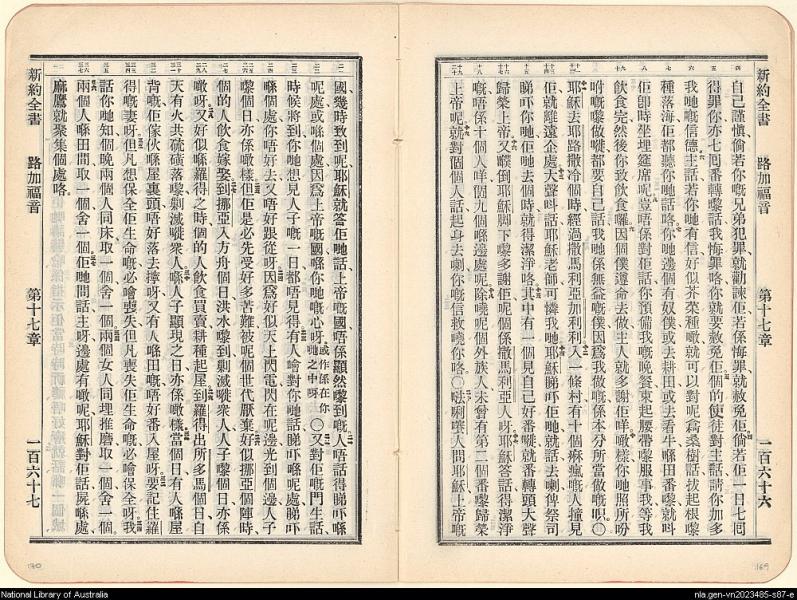 新約全書 路加福音 第十七章 一百六十六
自己謹慎倘若你嘅兄弟犯罪就勸諫佢若係悔罪就赦免佢倘若佢一日七囘
得罪你亦七囘番轉嚟話我悔罪咯你就要赦免佢個的使徒對主話請你加多
我哋嘅信德主話若你哋有信好似芥菜種噉就可以對呢喬桑樹話拔起根嚟
種落海佢都聽你哋話咯你哋邊個有奴僕或去耕田或去看牛喺田番嚟就呌
佢卽時坐埋筵席呢豈唔係對佢話你預備我嘅晚餐束起腰帶嚟服事我等我
飲食完然後你致飲食囉因個僕遵命去做主人就多謝佢咩噉樣你哋照所吩
咐嘅嚟做嗮都要自己話我哋係無益嘅僕因爲我做嘅係本分所當做嘅呮〇
耶穌去耶路撒冷個時經過撒馬利亞加利利入一條村有十個痳瘋嘅人撞見
佢就離遠企處大聲呌話耶穌老師可憐我哋耶穌睇吓佢哋就話去喇俾祭司
睇吓你哋佢哋去個時就得潔淨咯其中有一個見自己好番嗮就番轉頭大聲
歸榮上帝又噗倒耶穌脚下嚟多謝佢呢個係撒馬利亞人呀耶穌答話得潔淨
嘅唔係十個人咩個九個喺邊處呢除嘵呢個外族人未曾有第二個番嚟歸榮
上帝呢就對個個人話起身去喇你嘅信救嘵你咯〇唎人問耶穌上帝嘅
國幾時致到呢耶穌就答佢哋話上帝嘅國唔係顯然嚟到嘅人唔話得睇吓喺
呢處或喺個處因爲上帝嘅國喺你哋嘅心呀或作係在你哋之中呀〇又對佢嘅門生話
時候將到你哋想見人子嘅一日都唔見得有人噲對你哋話睇吓喺呢處睇吓
喺個處你唔好去又唔好跟從呀因爲好似天上閃電閃在呢邊光到個邊人子
嚟個日亦係噉樣但佢是必先受好多苦難被呢個世代厭棄好似挪亞個陣時
個的人飲食嫁娶到挪亞入方舟個日洪水嚟到剿滅嗮衆人人子嚟個日亦係
噉呀又好似喺羅得之時個的人飲食買賣耕種起屋到羅得出所多馬個日自
天有火共硫磺落嚟剿滅嗮衆人喺人子顯現之日亦係噉樣當個日有人喺屋
背嘅佢傢伙喺屋裏頭唔好落去擰呀又有人喺田嘅唔好番入屋呀要記住羅
得嘅妻呀但凡想保全佢生命嘅必噲喪失佢但凡喪失佢生命嘅必噲保全呀我
話你哋知個晚兩個人同床取一個舍一個兩個女人同埋推磨取一個舍一個
兩個人喺田間取一個舍一個佢哋問話主呀邊處有噉呢耶穌對佢話屍喺處
麻鷹就聚集個處咯
新約全書 路加福音 第十七章 一百六十七
170
169
National Library of Australia
nla.gen-vn2023485-s87-e